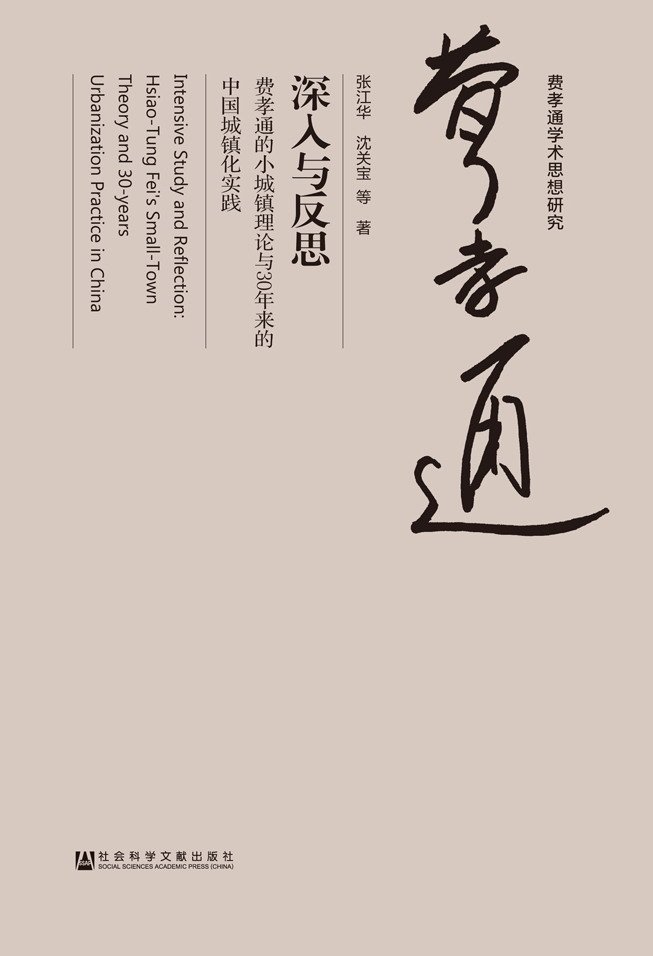 费孝通学术思想研究
费孝通
张江华 沈关宝 等 著
深入与反思
费孝通的小城镇理论与30年来的
中国城镇化实践
Intensive Study and Reflection:
Hsiao-Tung Fei's Small-Town
Theory and 30-years
Urbanization Practice in China
社会科学文献出版社
SOCIAL SCIENCES ACADEMIC PRESS (CHINA)